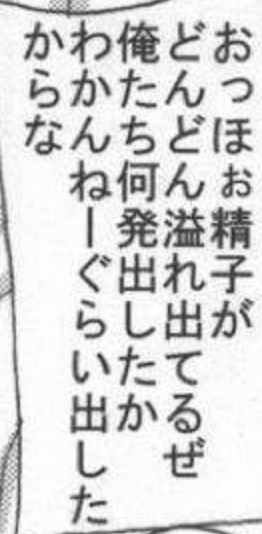 おっほぉ精子が
どんどん溢れ出てるぜ
俺たち何発出したか
わかんねーぐらい出した
からな